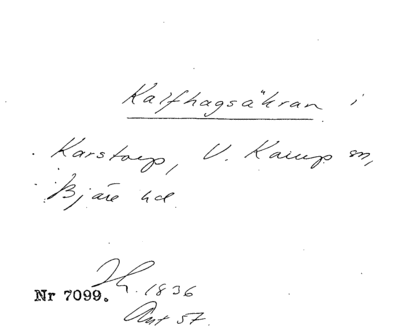 Kalfhagsåkran i
Karstorp, V. Karup sn,
Bjäre hd
Nr 7099. Lh. 1836
Akt 57.